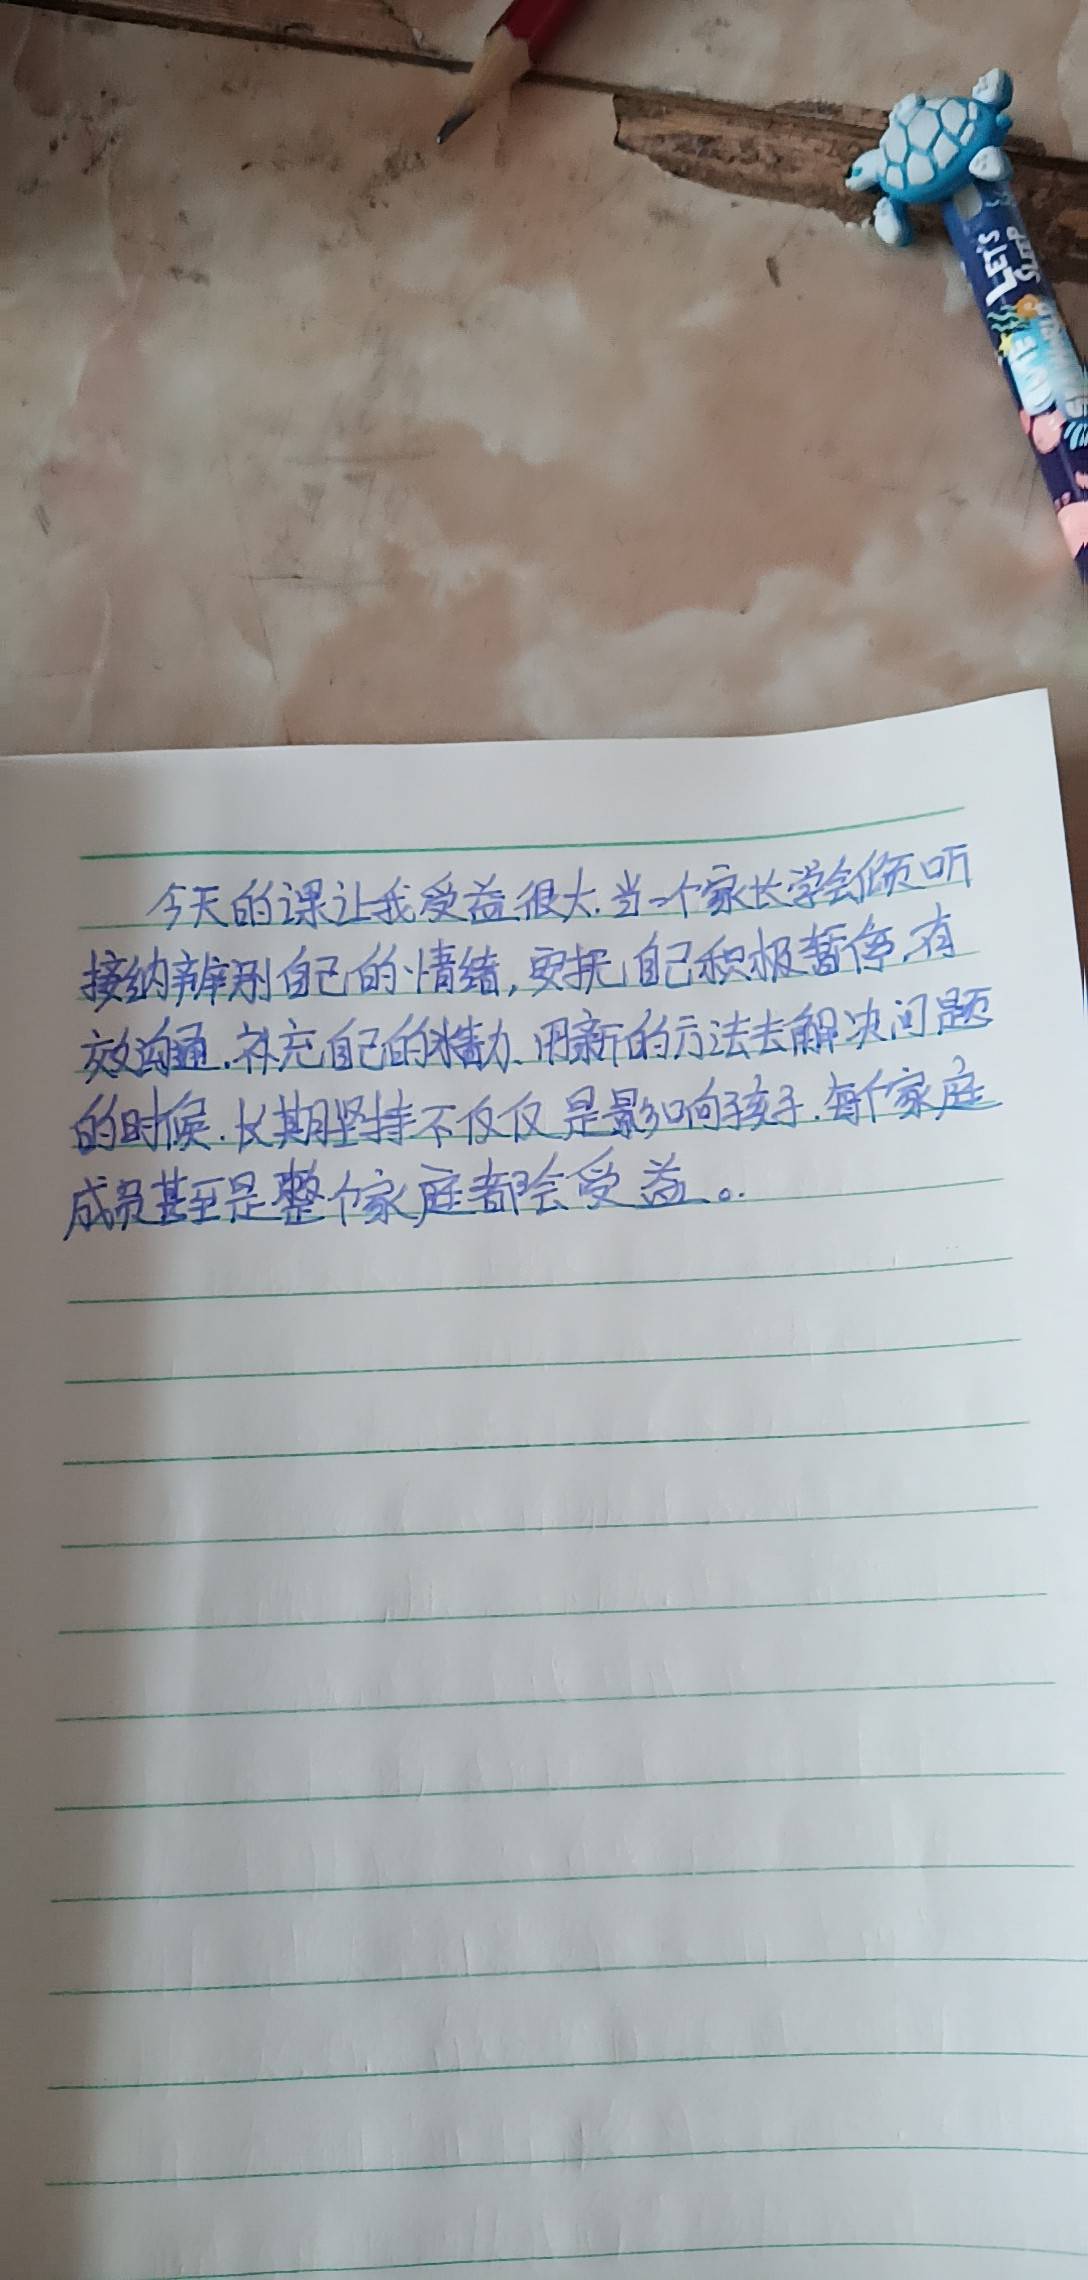 LET'S
今天的课让我受益很大.当一个家长学会倾听
接纳辨别自己的情绪,要把自己积极暂停.有
效沟通.补充自己的精力.用新的方法去解决问题
的时候.长期坚持不仅仅是影响孩子.每个家庭
成员甚至是整个家庭都会受益。.